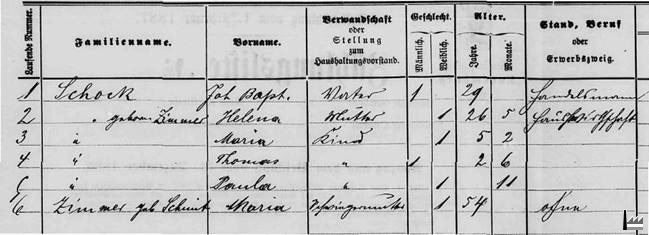 Laufende Nummer. Familienname. Vorname. Verwandschaft oder Stellung zum Haushaltungsvorstand. Geschlecht. Männlich. Weiblich. Alter. Jahre. Monate. Stand, Beruf oder Erwerbszweig.
1 Schock Joh Bapt. Vater 1 29 Handelsmann
2 " geborn Zimmer Helena Mutter 1 26 5 Hauswirthschaft
3 " Maria Kind 1 5 2
4 " Thomas " 1 2 6
5 " Paula " 1 11
6 Zimmer geb Schmit Maria Schwiegermutter 1 54 ohne